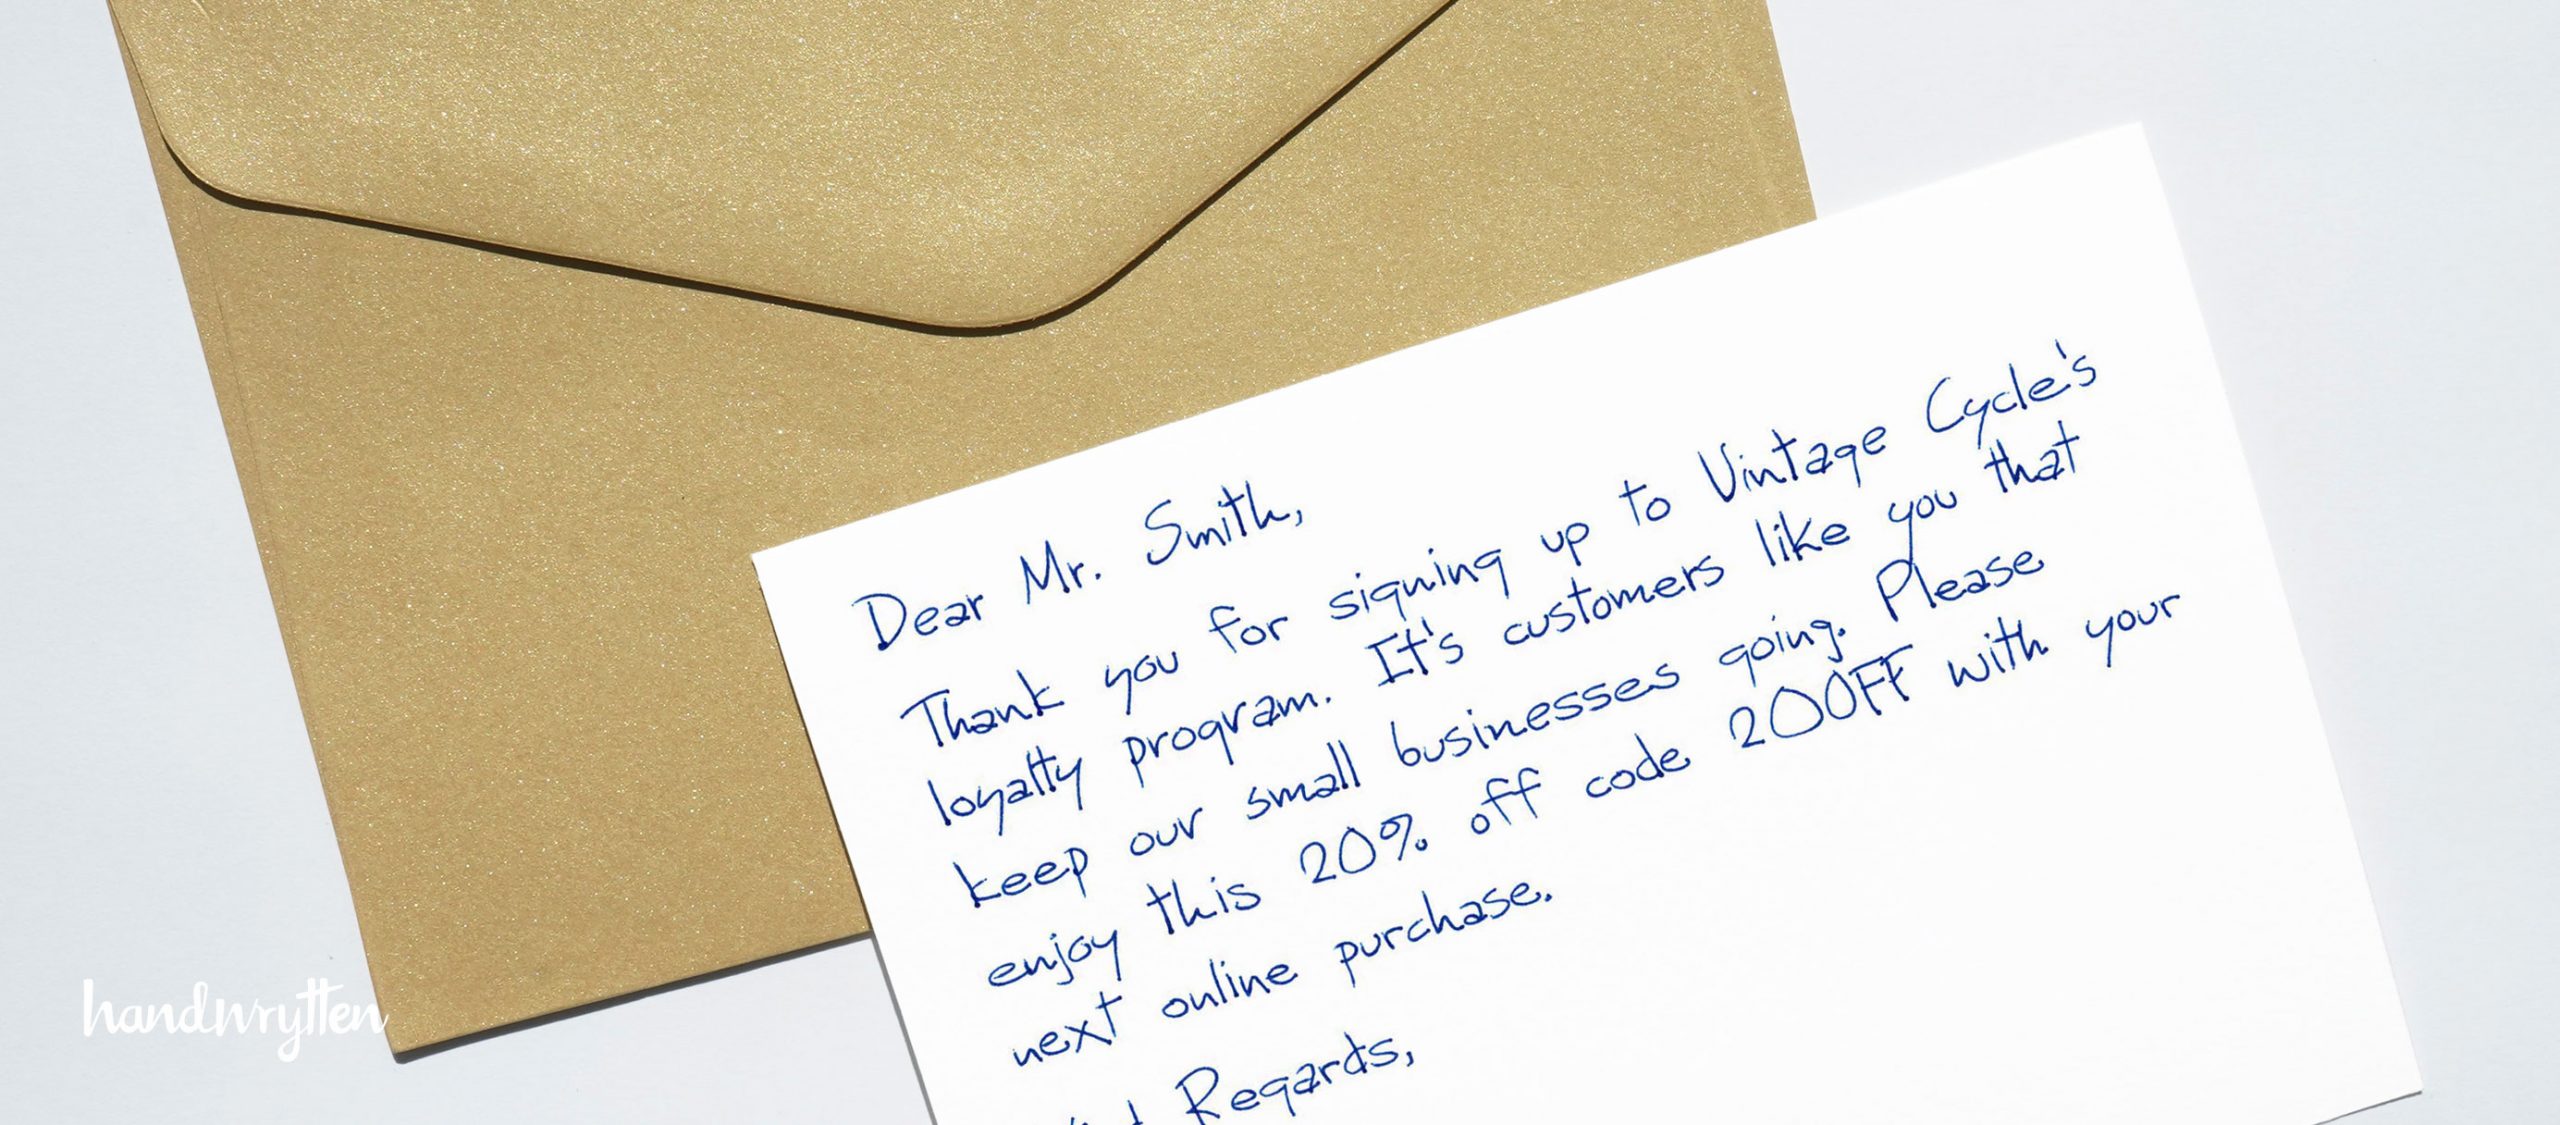 Dear Mr. Smith,
Thank you for signing up to Vintage Cycle's
loyalty program. It's customers like you that
keep our small businesses going. Please
enjoy this 20% off code 20OFF with your
next online purchase.
Regards,
handwrytten